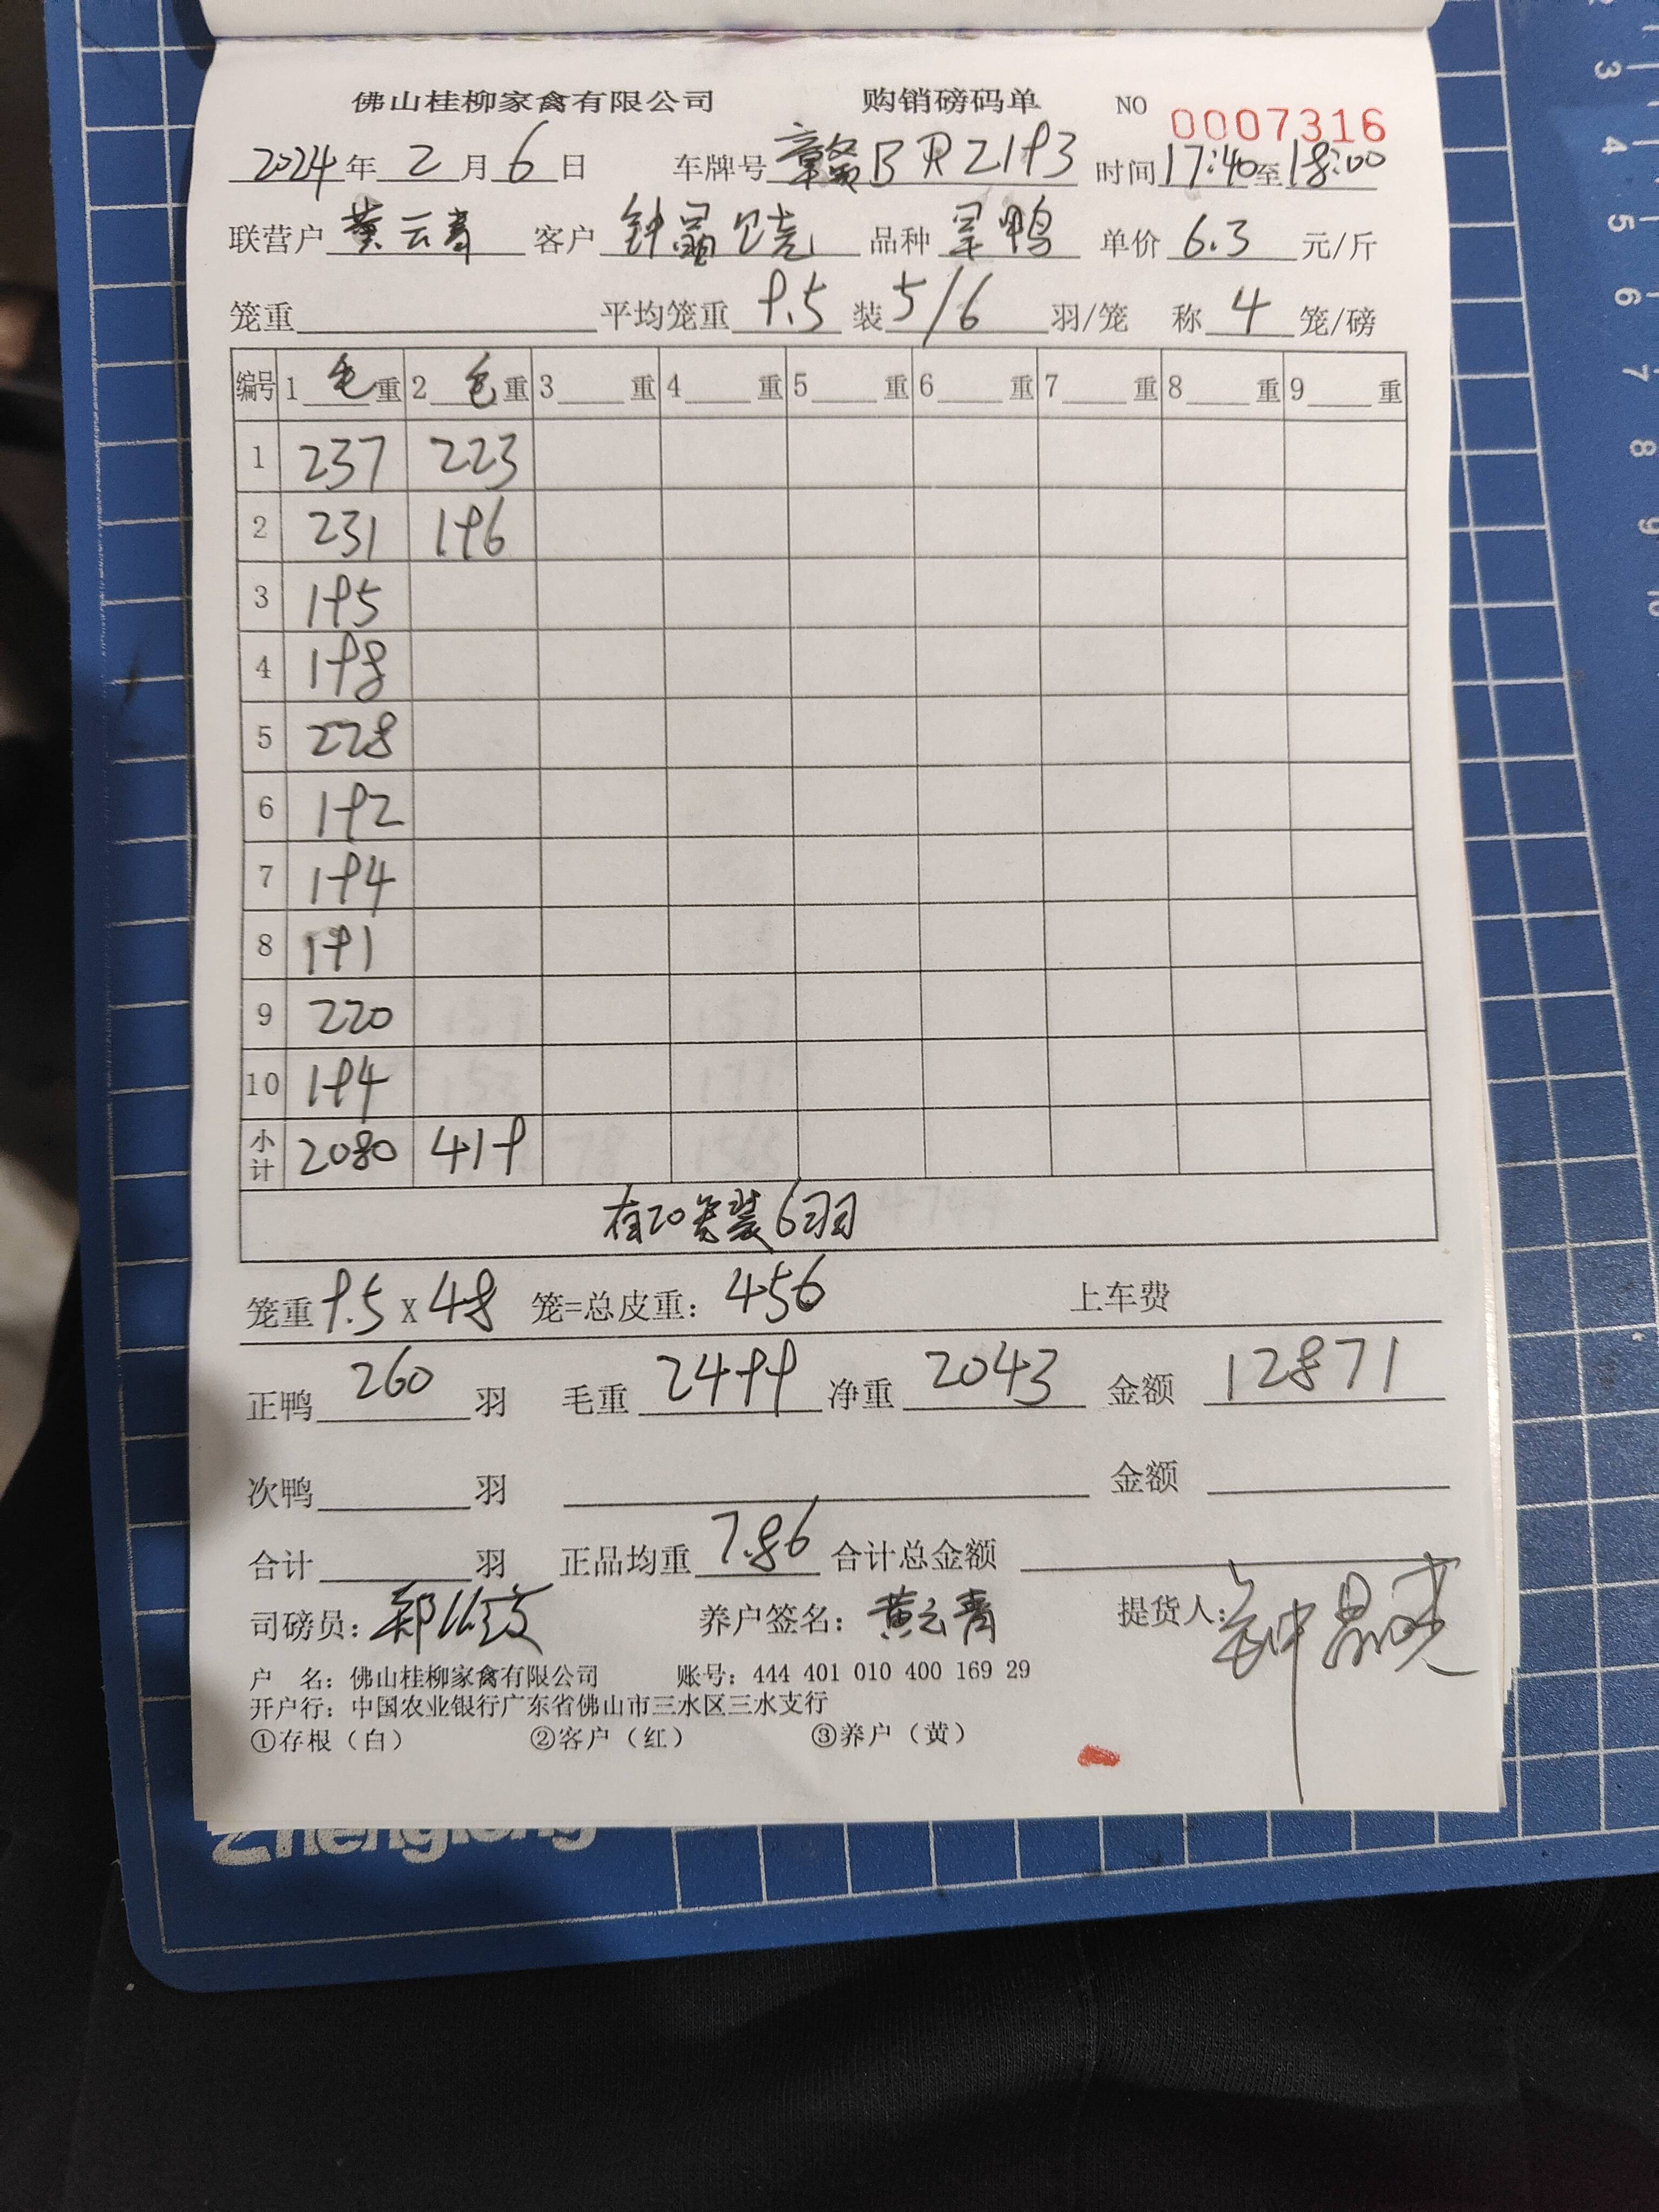 佛山桂柳家禽有限公司 购销磅码单 NO 0007316
2024年2月6日 车牌号 赣BR2193 时间17:40至18:00
联营户 黄云青 客户 钟晶晓 品种 呆鸭 单价 6.3 元/斤
笼重 平均笼重 9.5 装 5/6 羽/笼 称 4 笼/磅
编号 1 毛 重 2 毛 重 3 重 4 重 5 重 6 重 7 重 8 重 9 重
1 237 223
2 231 196
3 195
4 198
5 228
6 192
7 194
8 191
9 220
10 194
小计 2080 419
有20笼装6羽
笼重 9.5 X 48 笼=总皮重: 456 上车费
正鸭 260 羽 毛重 2499 净重 2043 金额 12871
次鸭 羽 金额
合计 羽 正品均重 7.86 合计总金额
司磅员: 郑 养户签名: 黄云青 提货人: 钟晶晓
户 名: 佛山桂柳家禽有限公司 账号: 444 401 010 400 169 29
开户行: 中国农业银行广东省佛山市三水区三水支行
①存根（白） ②客户（红） ③养户（黄）
3
4
5
6
7
8
9
10